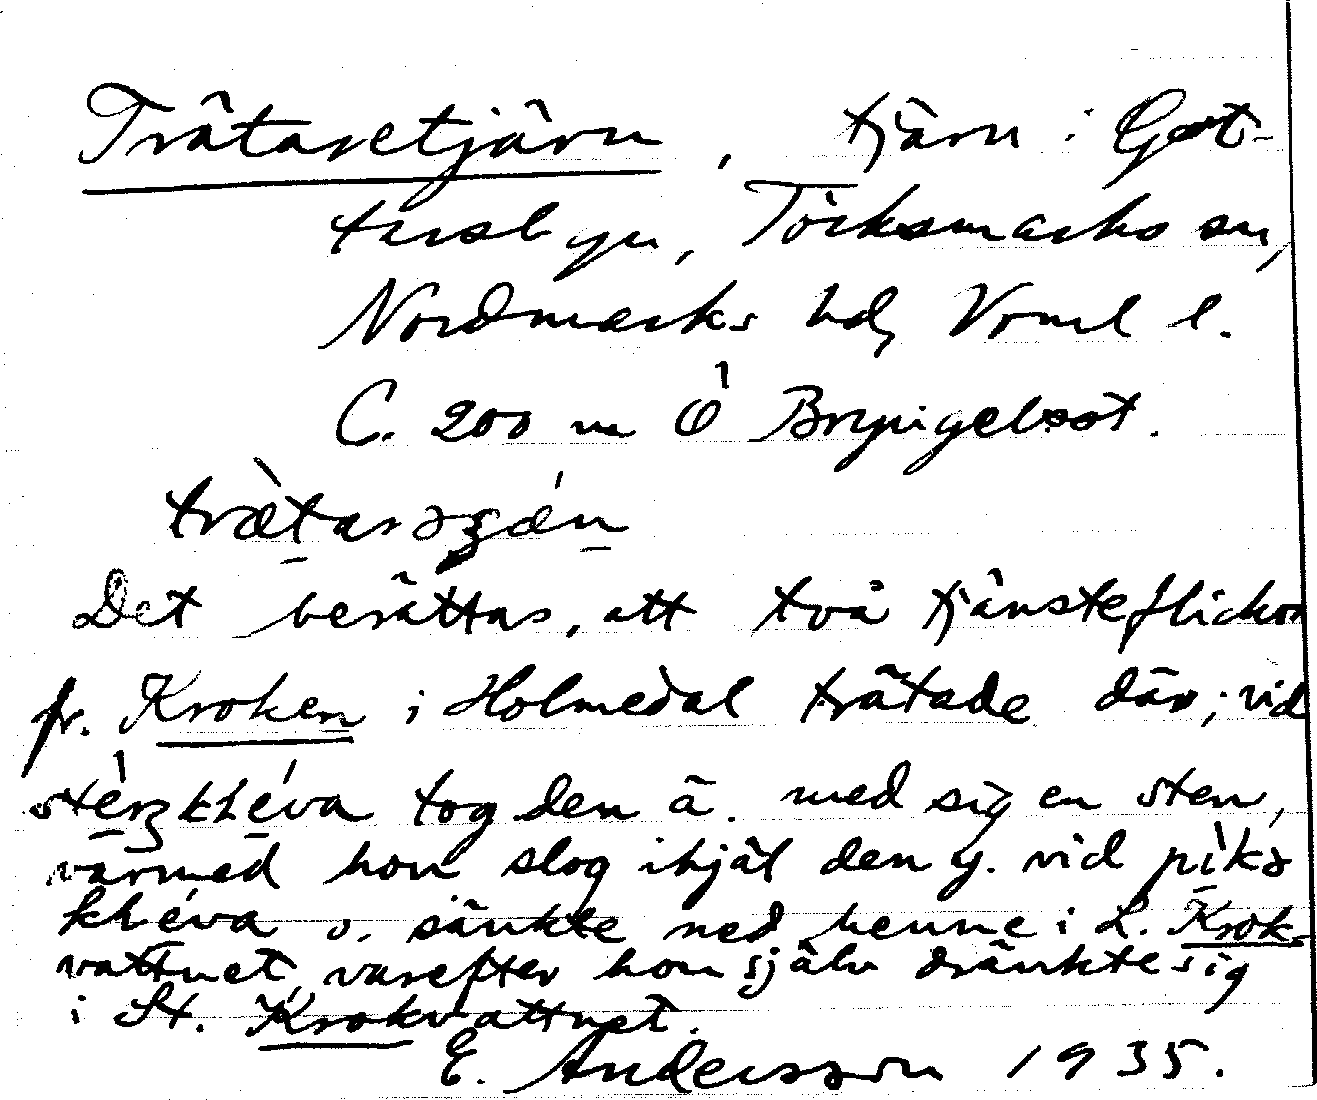 Trätaretjärn, tjärn i Got-
tarsbyn, Töcksmarks sn,
Nordmarks hd, Vrml l.
C. 200 m Ö Bryngelsbot.
Det berättas, att två tjänsteflickor
fr. Kroken i Holmedal trätade där; vid
tog den ä. med sig en sten,
varmed hon slog ihjäl den y. vid
o. sänkte ned henne i L. Krok-
vattnet, varefter hon själv dränkte sig
i St. Krokvattnet.
E. Andersson 1935.